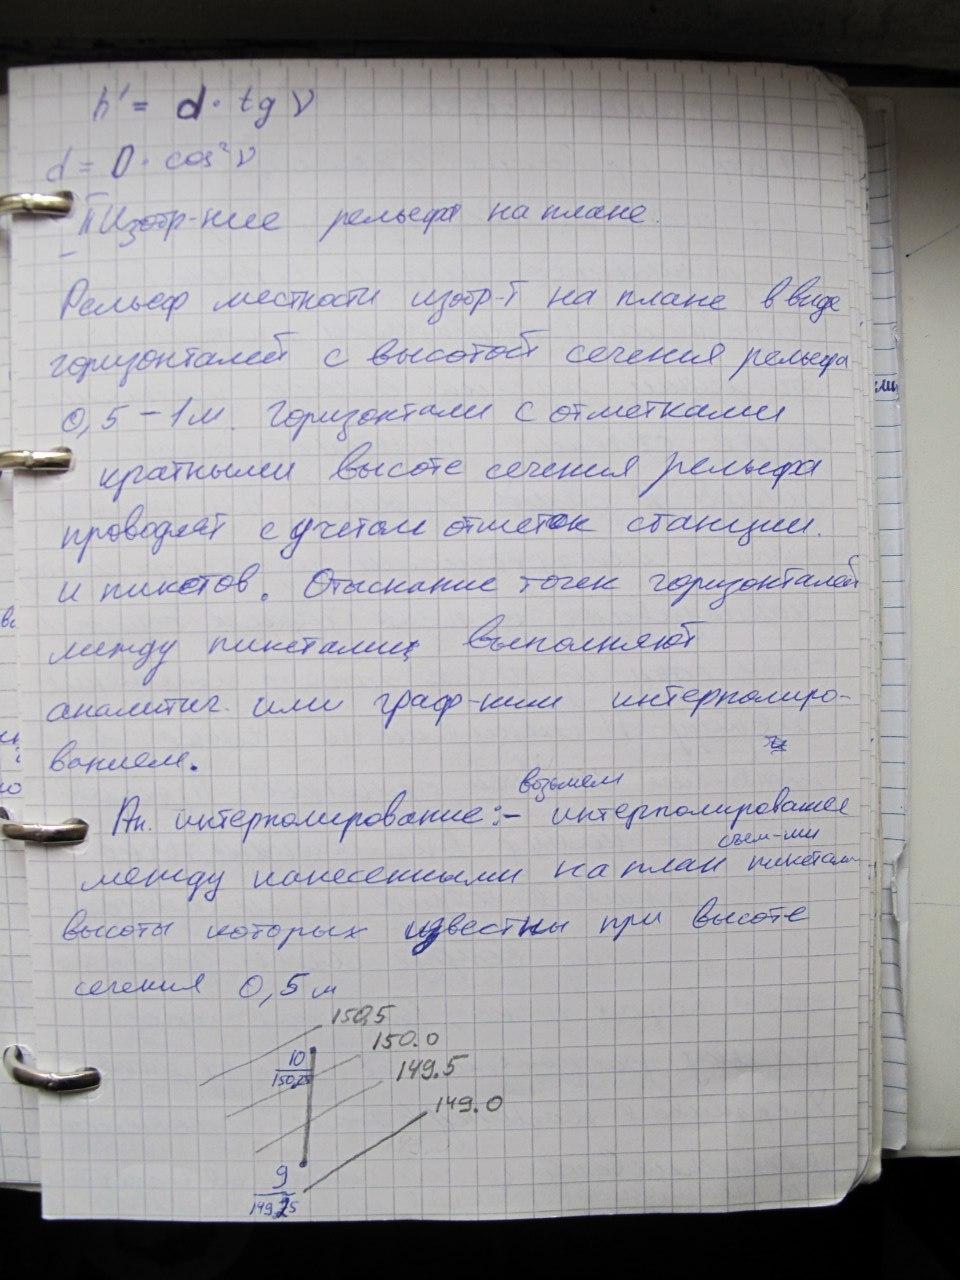 h' = d · tg ν
d = D · cos² ν
Изобр-ние рельефа на плане.
Рельеф местности изобр-т на плане в виде
горизонталей с высотой сечения рельефа
0,5 – 1 м. Горизонтали с отметками
кратными высоте сечения рельефа
проводят с учетом отметок станции.
и пикетов. Отыскание точек горизонталей
между пикетами выполняют
аналитич. или граф-ким интерполиро-
ванием.
возьмем
Ан. интерполирование: – интерполирование
съем-ми
между нанесенными на план пикетами
высоты которых известны при высоте
сечения 0,5 м
150,5
150.0
10
150,25
149.5
149.0
9
149,25